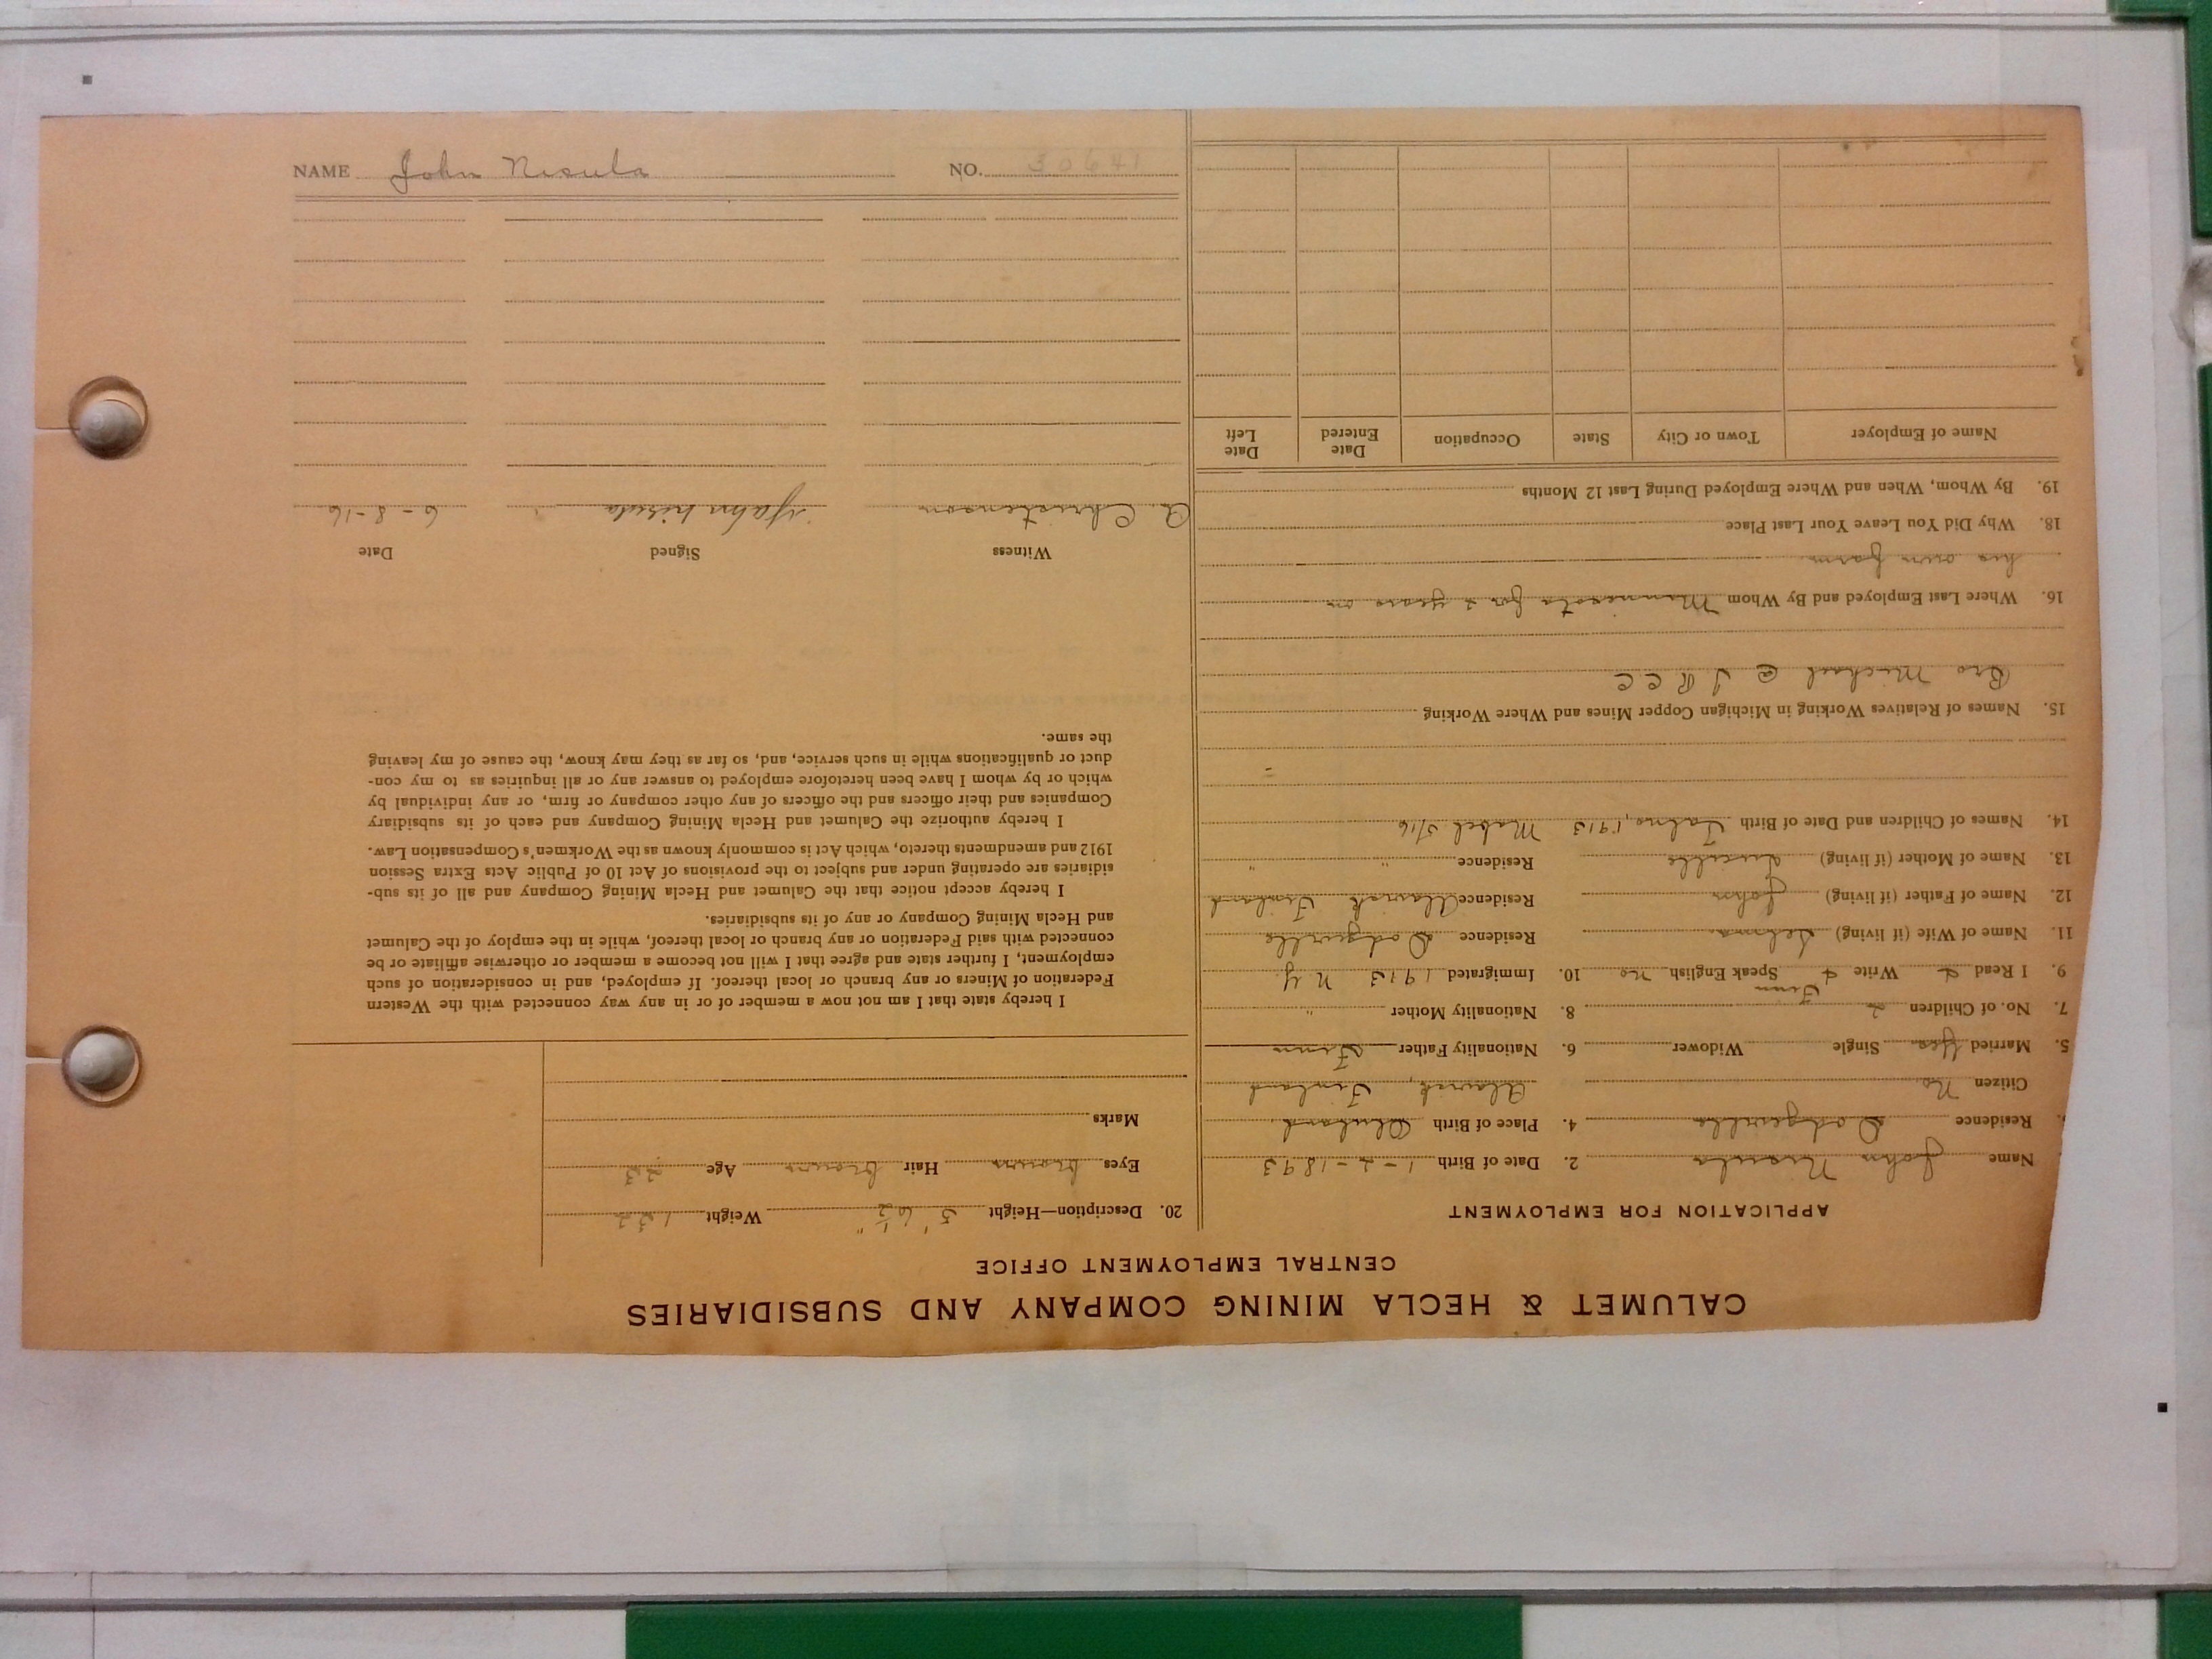 CALUMET & HECLA MINING COMPANY AND SUBSIDIARIES
CENTRAL EMPLOYMENT OFFICE
APPLICATION FOR EMPLOYMENT
Name John Nisula 2. Date of Birth 1-2-1893
Residence Dodgeville 4. Place of Birth
Citizen No Finland
5. Married Yes Single Widower 6. Nationality Father Finn
7. No. of Children 2 8. Nationality Mother "
Finn
9. I Read & Write & Speak English no 10. Immigrated 1913 N Y
11. Name of Wife (if living) Selma Residence Dodgeville
12. Name of Father (if living) John Residence Finland
13. Name of Mother (if living) Residence " "
14. Names of Children and Date of Birth 1913 Mabel
15. Names of Relatives Working in Michigan Copper Mines and Where Working
Bro Michael @ I R C C
16. Where Last Employed and By Whom Minnesota for 2 years on
his own farm
18. Why Did You Leave Your Last Place
19. By Whom, When and Where Employed During Last 12 Months
Name of Employer Town or City State Occupation Date Entered Date Left
20. Description—Height 5' 6½" Weight 132
Eyes brown Hair brown Age 23
Marks
I hereby state that I am not now a member of or in any way connected with the Western
Federation of Miners or any branch or local thereof. If employed, and in consideration of such
employment, I further state and agree that I will not become a member or otherwise affiliate or be
connected with said Federation or any branch or local thereof, while in the employ of the Calumet
and Hecla Mining Company or any of its subsidiaries.
I hereby accept notice that the Calumet and Hecla Mining Company and all of its sub-
sidiaries are operating under and subject to the provisions of Act 10 of Public Acts Extra Session
1912 and amendments thereto, which Act is commonly known as the Workmen's Compensation Law.
I hereby authorize the Calumet and Hecla Mining Company and each of its subsidiary
Companies and their officers and the officers of any other company or firm, or any individual by
which or by whom I have been heretofore employed to answer any or all inquiries as to my con-
duct or qualifications while in such service, and, so far as they may know, the cause of my leaving
the same.
Witness Signed Date
A. Christenson John Nisula 6-8-16
NAME John Nisula NO. 30641